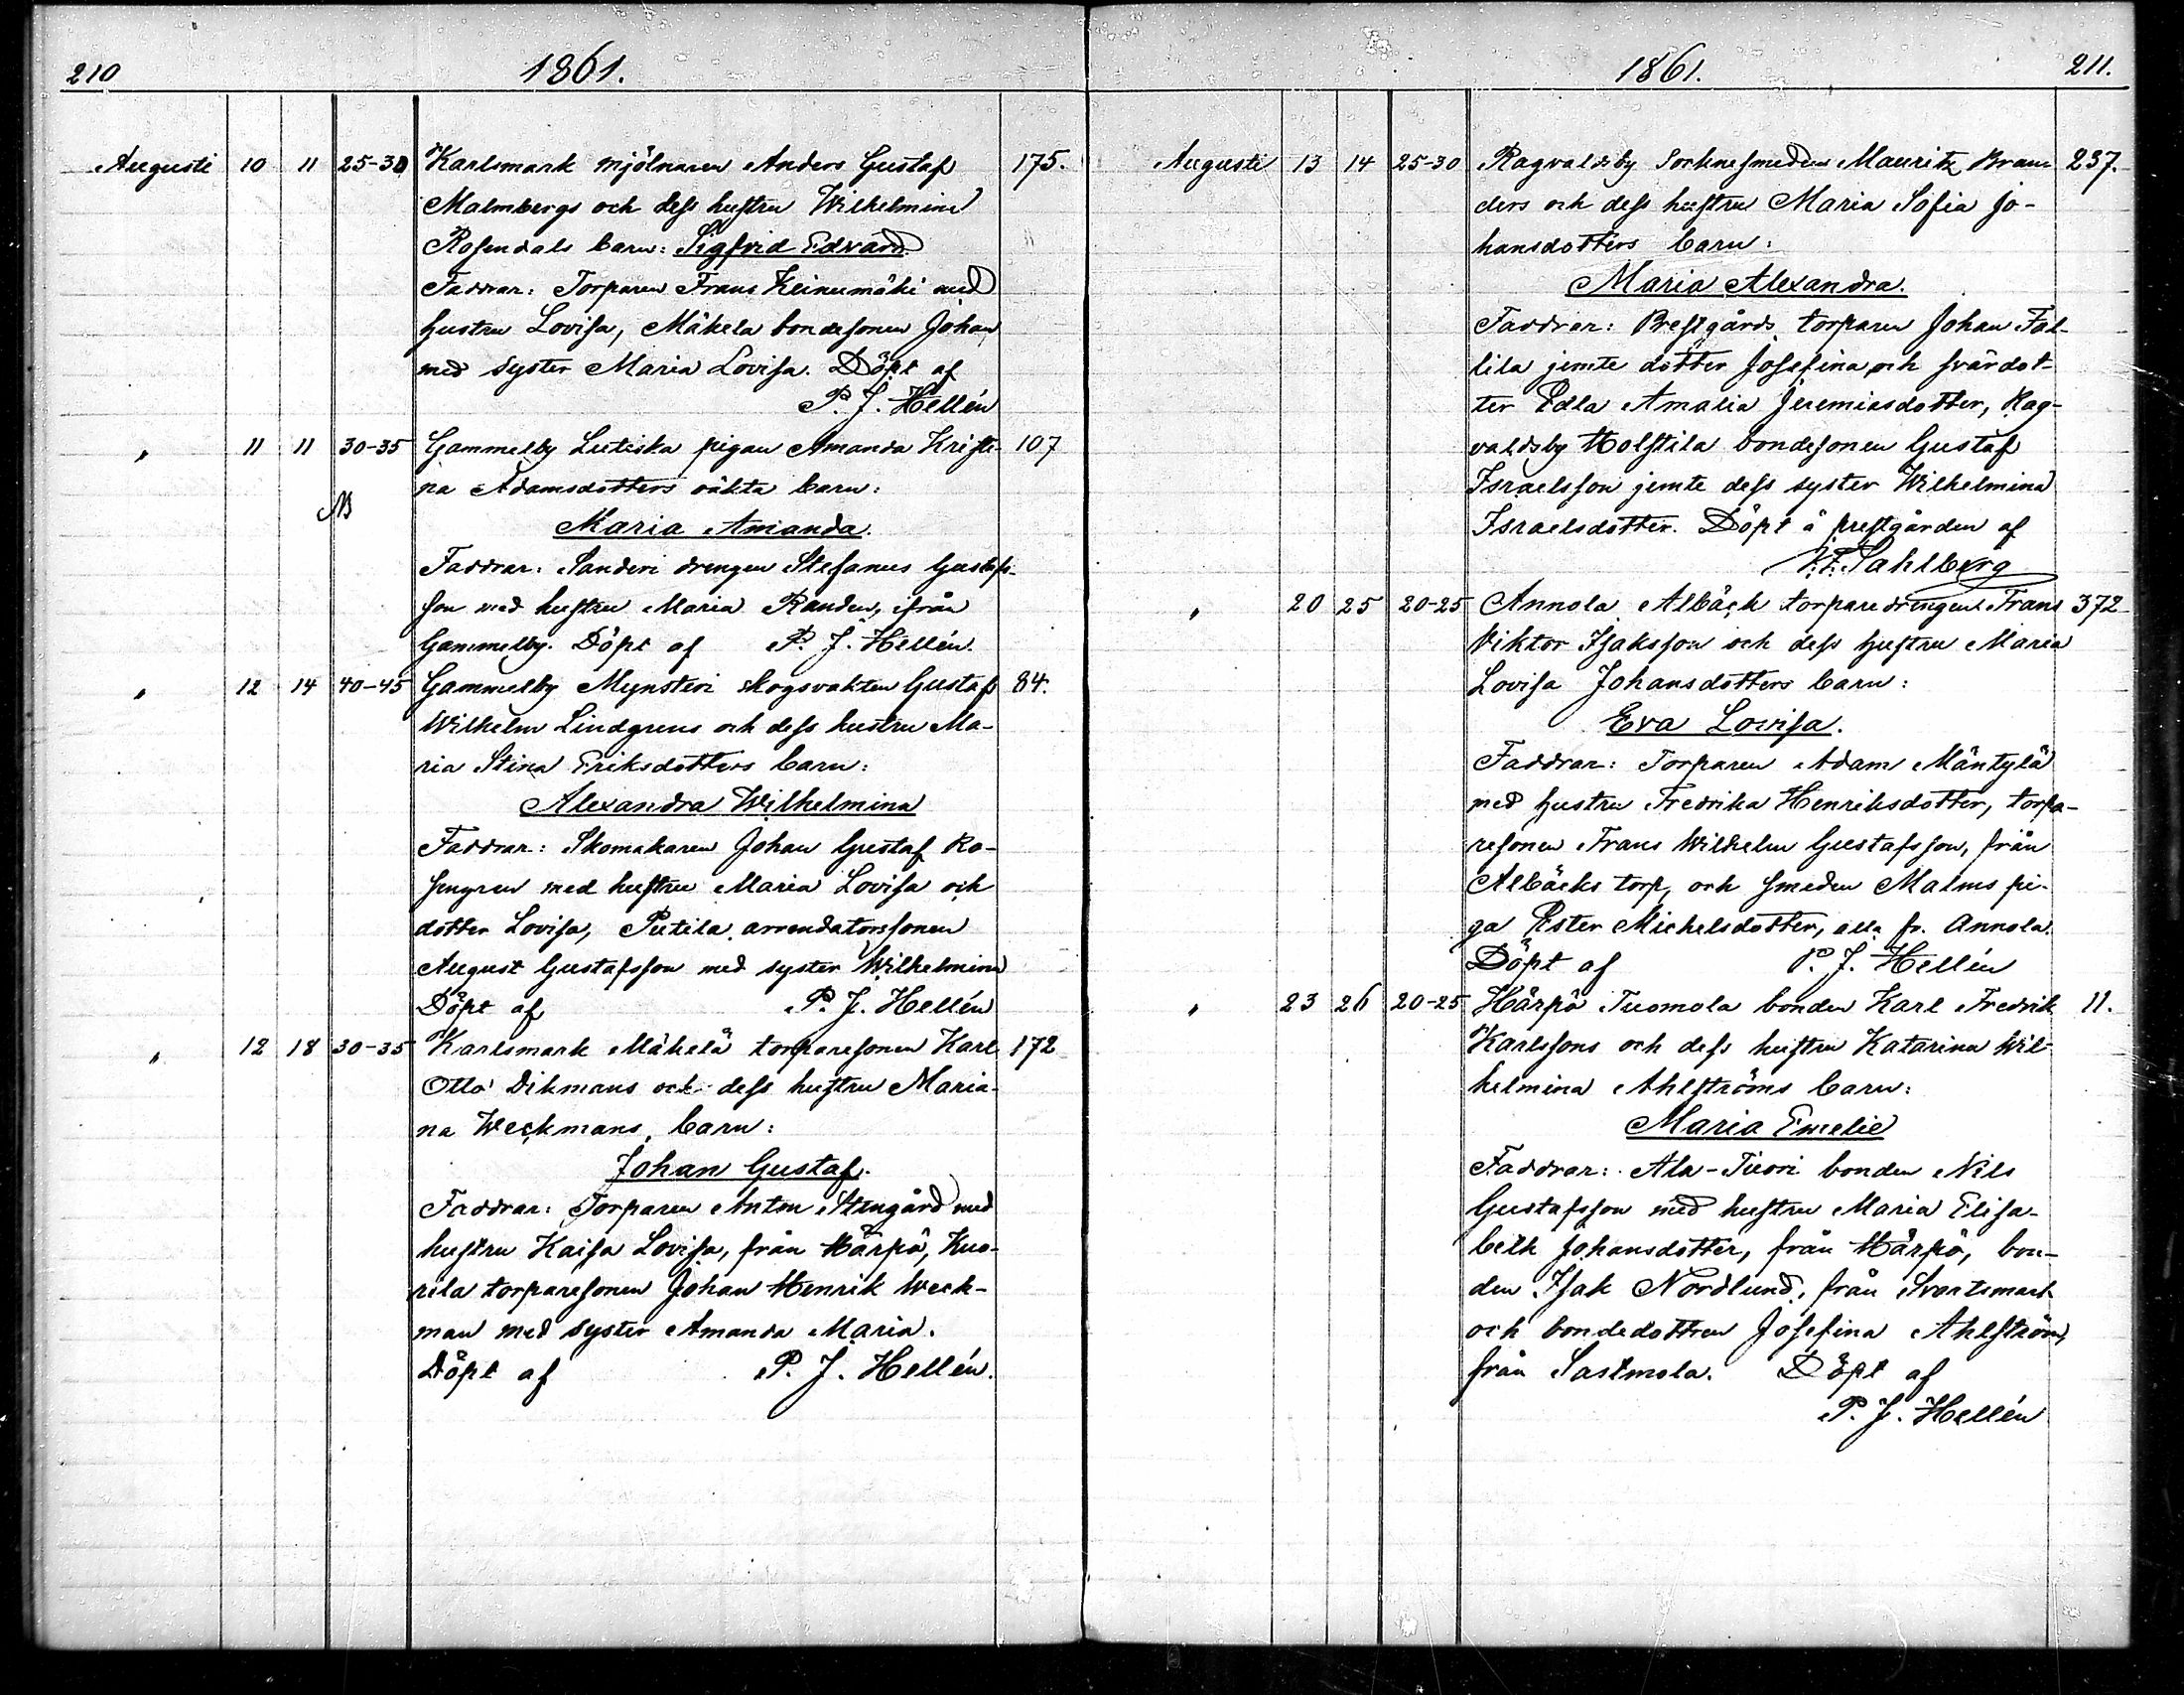 210
1861.
Augusti 10 11 25-30 Karlsmark mjölnaren Anders Gustaf 175.
Malmbergs och dess hustru Wilhelmina
Rosendals barn: Sigfrid Edvard
Faddrar: Torparen Frans Keinumäki med
hustru Lovisa, Mäkela bondesonen Johan
med syster Maria Lovisa. Döpt af
P. J. Hellén
" 11 11 30-35 Gammelby Luteiska pigan Amanda Kristi- 107
na Adamsdotters oäkta barn:
NB
Maria Amanda.
Faddrar: Sanderi drengen Stefanus Gustafs-
son med hustru Maria Randen, ifrån
Gammelby. Döpt af P. J. Hellén.
" 12 14 40-45 Gammelby Mynsteri skogsvakten Gustaf 84.
Wilhelm Lindgrens och dess hustru Ma-
ria Stina Eriksdotters barn:
Alexandra Wilhelmina
Faddrar: Skomakaren Johan Gustaf Ro-
sengren med hustru Maria Lovisa och
dotter Lovisa, Putila arrendatorssonen
August Gustafsson med syster Wilhelmina
Döpt af P. J. Hellén
" 12 18 30-35 Karlsmark Mäkelä torparesonen Karl 172
Otto Dikmans och dess hustru Maria-
na Weckmans, barn:
Johan Gustaf.
Faddrar: Torparen Anton Stengård med
hustru Kaisa Lovisa, från Härpö, Kuo-
rila torparesonen Johan Henrik Weck-
man med syster Amanda Maria.
Döpt af P. J. Hellén.
1861.
211.
Augusti 13 14 25-30 Ragvaldsby Socknesmeden Mauritz Bran- 237.
ders och dess hustru Maria Sofia Jo-
hansdotters barn:
Maria Alexandra.
Faddrar: Prestgårds torparen Johan Fal-
lila jemte dotter Josefina och svärdot-
ter Edla Amalia Jeremiasdotter, Rag-
valdsby Holstila bondesonen Gustaf
Israelsson jemte dess syster Wilhelmina
Israelsdotter. Döpt å prestgården af
Sahlberg
" 20 25 20-25 Annola Albäck torparedrengen Frans 372
Viktor Isaksson och dess hustru Maria
Lovisa Johansdotters barn:
Eva Lovisa.
Faddrar: Torparen Adam Mäntylä
med hustru Fredrika Henriksdotter, torpa-
resonen Frans Wilhelm Gustafsson, från
Albäcks torp, och smeden Malms pi-
ga Ester Michelsdotter, alla fr. Annola.
Döpt af P. J. Hellén
" 23 26 20-25 Härpö Tuomola bonden Karl Fredrik 11.
Karlssons och dess hustru Katarina Wil-
helmina Ahlströms barn:
Maria Emelie
Faddrar: Ala-Tuori bonden Nils
Gustafsson med hustru Maria Elisa-
beth Johansdotter, från Härpö, bon-
den Isak Nordlund, från Svartsmark
och bondedottren Josefina Ahlström,
från Sastmola. Döpt af
P. J. Hellén